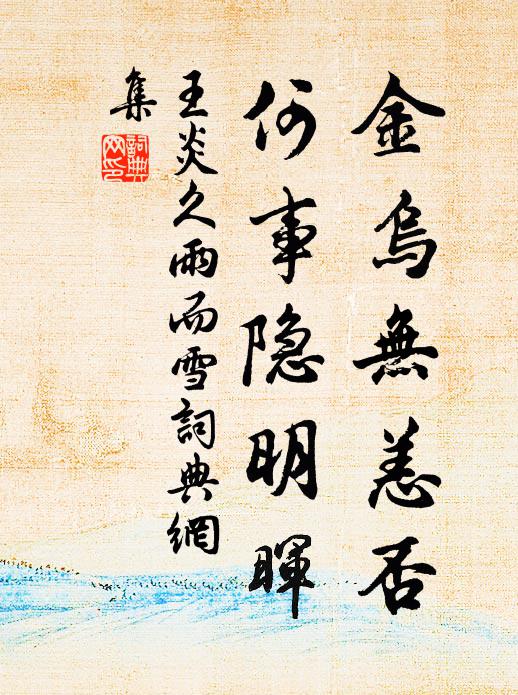 金烏無恙否
何事隐明暉
王炎久雨而雪詞典網
集
詞典
网印